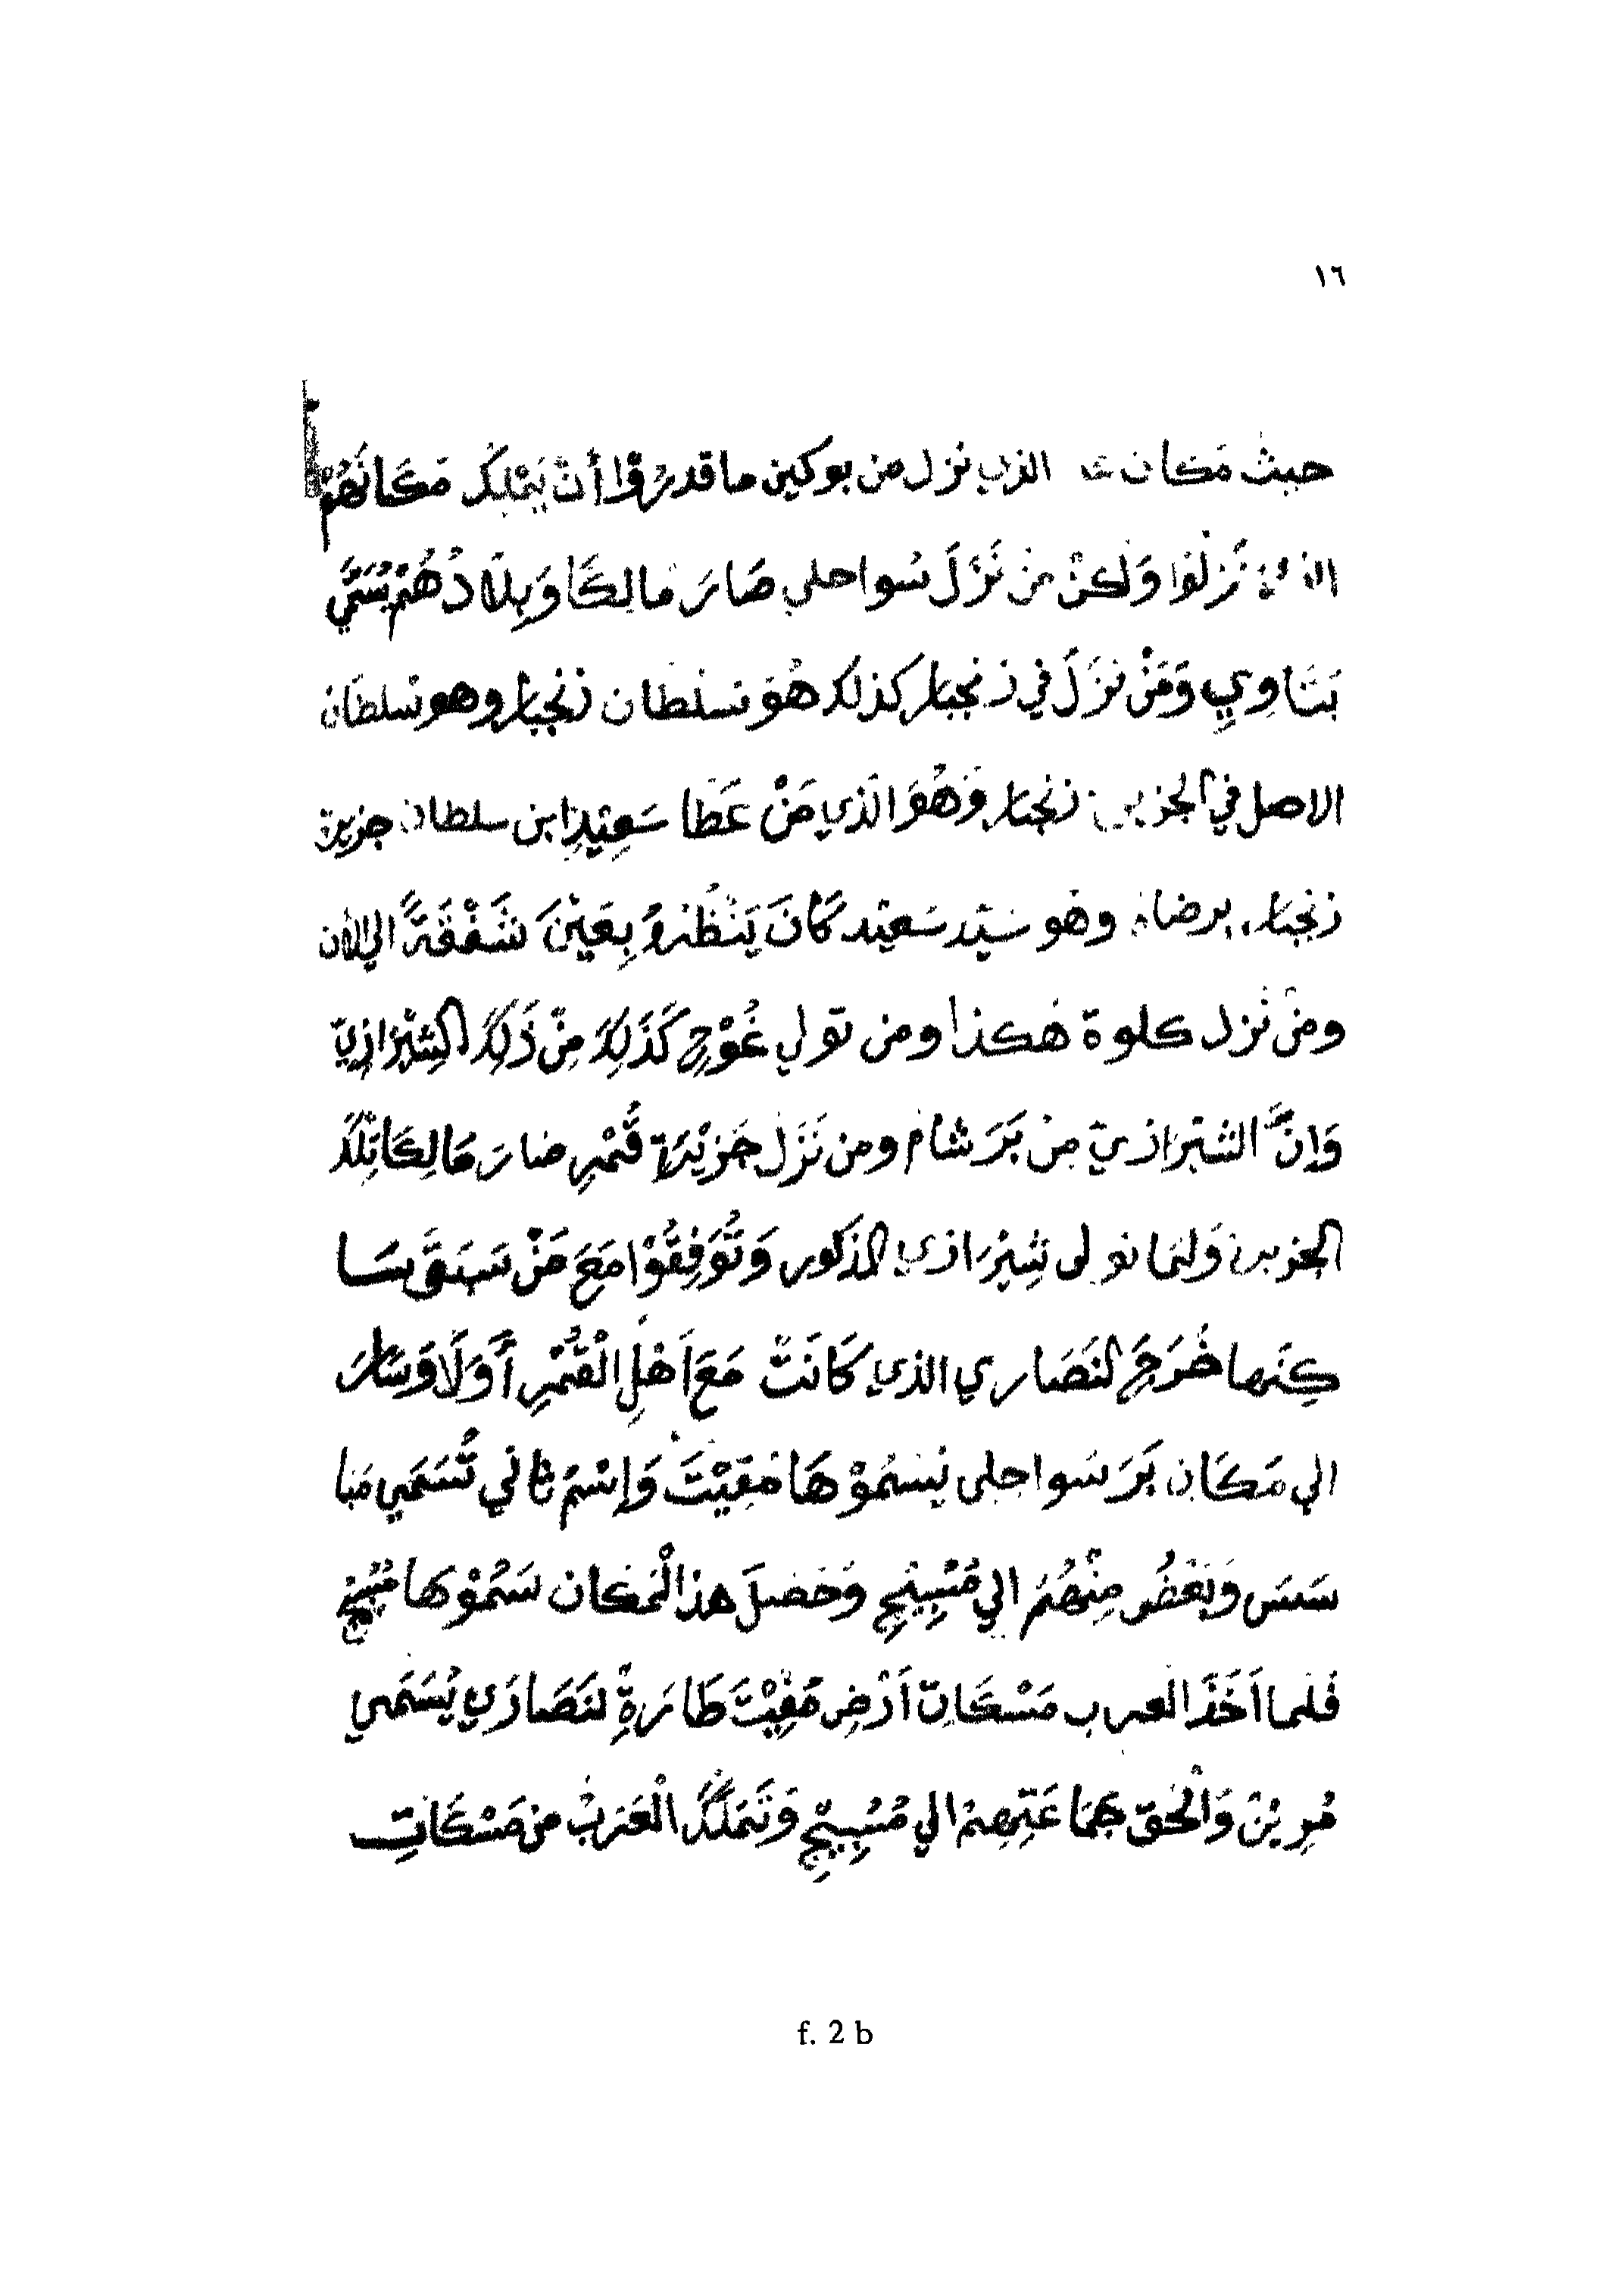 ١٦
حيث مكان الذي نزل من بوكين ما قدروا أنْ يَمْلِكُ مَكَانَهُمْ
نَزَلُوا وَلكنْ مَنْ نَزَلَ سُواحلي صَارَ مَالِكًا وَبِلَادُهُمْ يُسَمَّى
بَتَاوِي وَمَنْ نَزَلَ في زنجبار كذلك هُوَ سلطان زنجبار وهو سلطان
الاصل في الجزيرة زنجبار وَهُوَ الَّذي مَنْ عَطَا سَعِيْدِ ابن سلطان جزيرة
زنجبار برضاه وهو سَيِّد سَعِيْد كَانَ يَنْظُرُهُ بِعَيْنَ شَفْقَةً الي الأن
ومن نزل كلوة هكذا ومن تولي غُوْجِ كَذَلِكَ مِنْ ذَلِكَ الشِيْرَازِيّ
وَإِنَّ الشيرازيّ مِنْ بَرَ شام ومن نَزَلَ جَزِيْرَة قُمْرِ صَارَ مَالِكًا تِلْكَ
الجزيرة وَلمَا تولى شِيْرَازي المذكور وَتُوَفِقُوْا مَعَ مَنْ سَبَقَ بسَا
كِنَها خُرَجَ لنَصَاري الذي كَانَتْ مَعَ اَهْلِ الْقُمْرِ أَوَلَا وَسَارَ
الي مَكَانِ بَرَ سَواحِلى يُسَمُوْ هَا مَقِيْتَ وَإِسْمُ ثاني تُسَمَي مَبا
سَسَ وَبَعْضُ مِنْهُمْ الي مُسِبِيْجِ وَحَصَلَ هذا لْمَكان سَمُوْ هَا مُسِبِيْج
فَلما اَخَذَ العرب مَسْكَانِ اَرْضِ مَقِيْتَ طَارَةِ لنَصَارَي يُسَمَي
مُرِيْنَ وَالْحَقّ جَمَاعَتِهِمْ الي مُسِبِيْجِ وَتَمَلَّكَ الْعَرَبْ من مَسْكَاتِ
f. 2 b